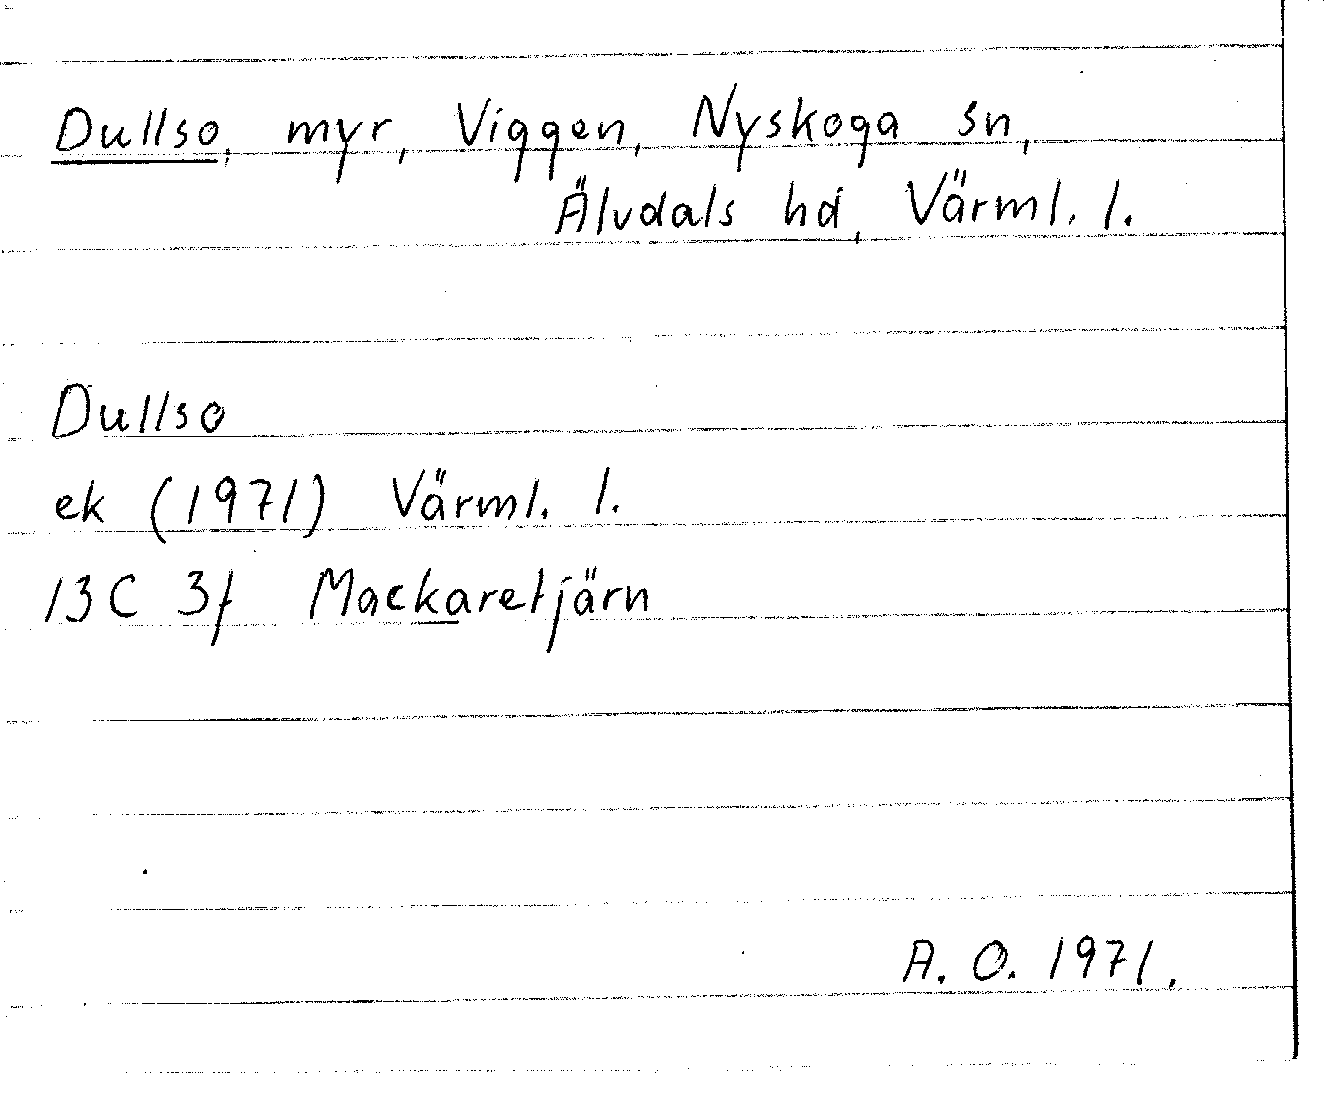 Dullso, myr, Viggen, Nyskoga sn,
Älvdals hd, Värml. l.
Dullso
ek (1971) Värml. l.
13C 3f Mackaretjärn
A. O. 1971.